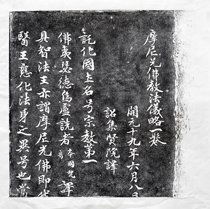 摩尼光佛教法儀略一卷
開元十九年六月八日
詔集賢院譯
託化國主名号宗教第一
佛夷瑟德烏盧詵者
具智法王亦謂摩尼光佛即
醫王應化法身之異号也當